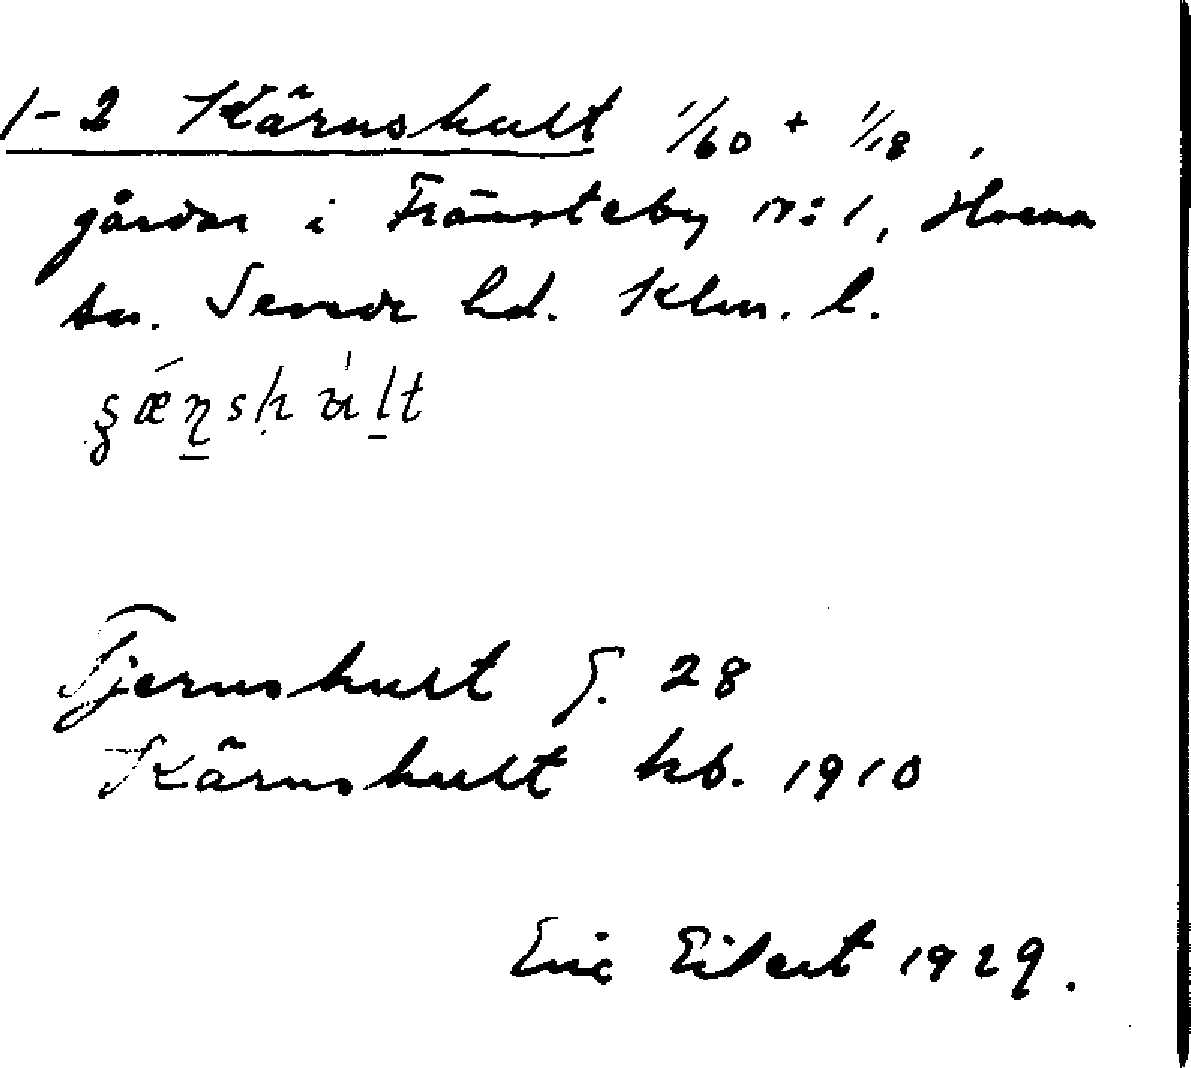 1-2 Kärnshult 1/60 + 1/18,
gårdar i Främsteby nr: 1, Hvena
sn. Sevede hd. Klm. l.
Tjernshult J. 28
Kärnshult kb. 1910
Eric Eilert 1929.